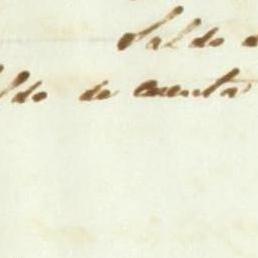 Saldo a
ldo de cuenta